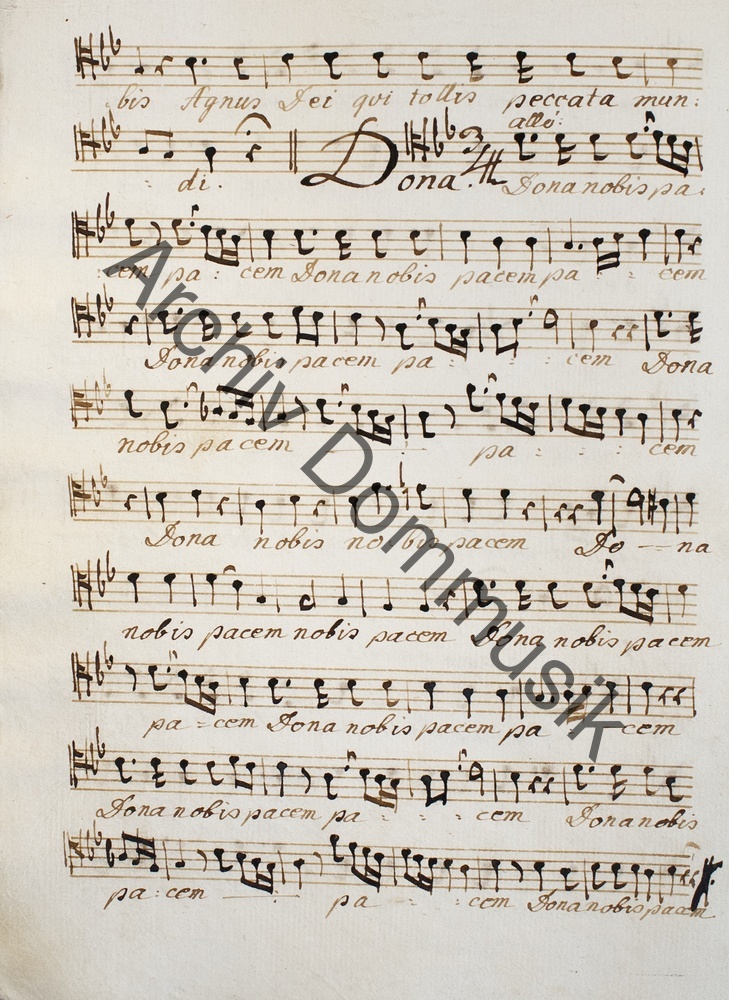 bis Agnus Dei qui tollis peccata mun:
: di. Dona. 3/4 allo: Dona nobis pa:
: cem pa : cem Dona nobis pacem pa : : cem
Dona nobis pacem pa : : : cem Dona
nobis pacem pa : : : cem
Dona nobis nobis pacem Do — na
nobis pacem nobis pacem Dona nobis pacem
pa : cem Dona nobis pacem pa : : cem
Dona nobis pacem pa : : : cem Dona nobis
pa : cem pa : : : cem Dona nobis pacem
Archiv Dommusik